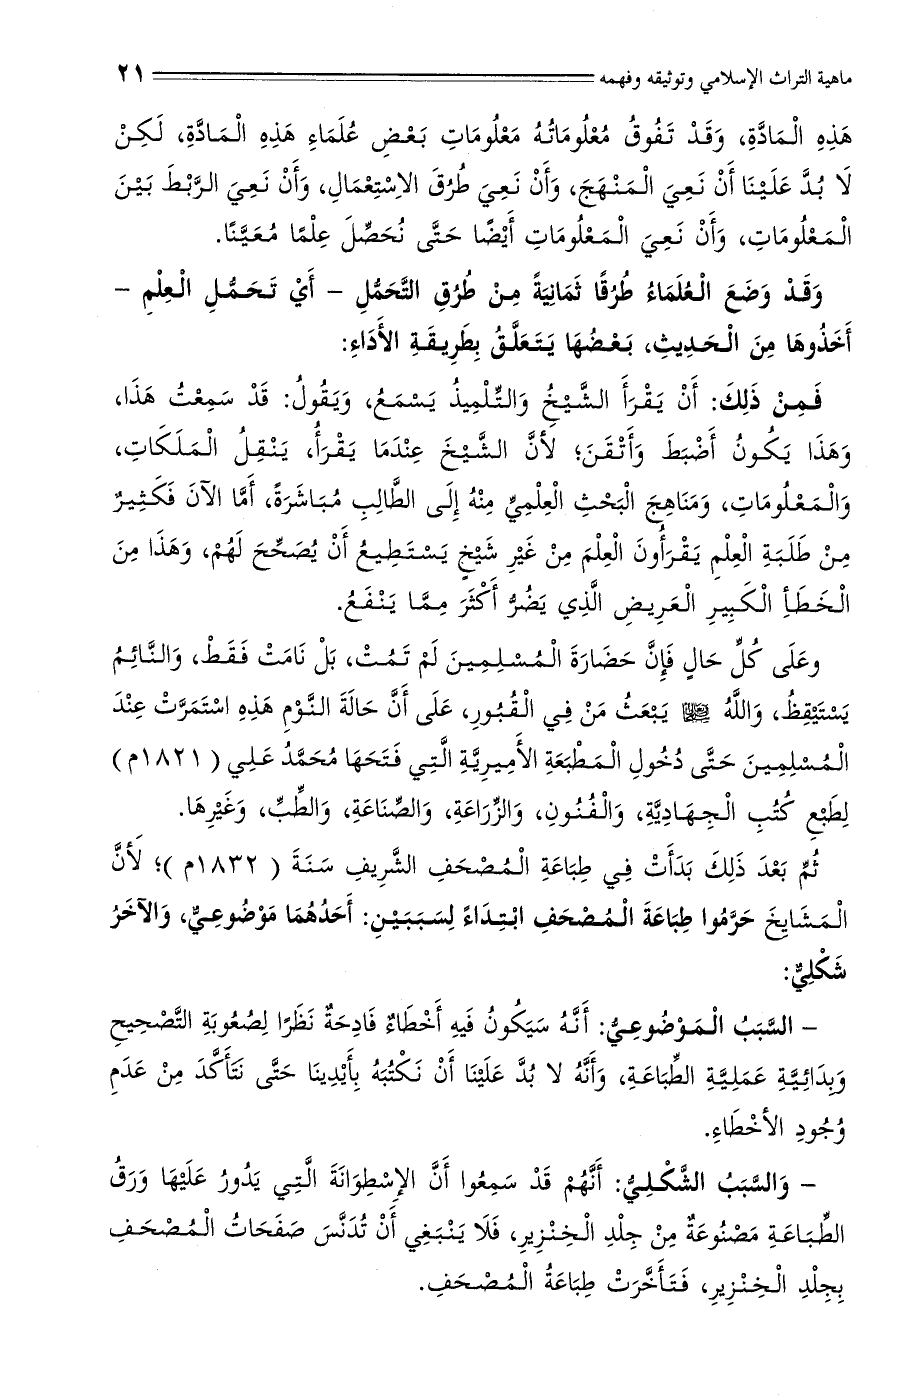 ماهية التراث الإسلامي وتوثيقه وفهمه ٢١
هَذِهِ الْمَادَّةِ، وَقَدْ تَفُوقُ مُعْلُومَاتُهُ مَعْلُومَاتِ بَعْضِ عُلَمَاءِ هَذِهِ الْمَادَّةِ، لَكِنْ
لَا بُدَّ عَلَيْنَا أَنْ نَعِيَ الْمَنْهَجَ، وَأَنْ نَعِيَ طُرُقَ الِاسْتِعْمَالِ، وَأَنْ نَعِيَ الرَّبْطَ بَيْنَ
الْمَعْلُومَاتِ، وَأَنْ نَعِيَ الْمَعْلُومَاتِ أَيْضًا حَتَّى نُحَصِّلَ عِلْمًا مُعَيَّنًا.
وَقَدْ وَضَعَ الْعُلَمَاءُ طُرُقًا ثَمَانِيَةً مِنْ طُرُقِ التَّحَمُّلِ – أَيْ تَحَمُّلِ الْعِلْمِ –
أَخَذُوهَا مِنَ الْحَدِيثِ، بَعْضُهَا يَتَعَلَّقُ بِطَرِيقَةِ الأَدَاءِ:
فَمِنْ ذَلِكَ: أَنْ يَقْرَأَ الشَّيْخُ وَالتِّلْمِيذُ يَسْمَعُ، وَيَقُولُ: قَدْ سَمِعْتُ هَذَا،
وَهَذَا يَكُونُ أَضْبَطَ وَأَتْقَنَ؛ لأَنَّ الشَّيْخَ عِنْدَمَا يَقْرَأُ، يَنْقِلُ الْمَلَكَاتِ،
وَالْمَعْلُومَاتِ، وَمَنَاهِجَ الْبَحْثِ الْعِلْمِيِّ مِنْهُ إِلَى الطَّالِبِ مُبَاشَرَةً، أَمَّا الآنَ فَكَثِيرٌ
مِنْ طَلَبَةِ الْعِلْمِ يَقْرَأُونَ الْعِلْمَ مِنْ غَيْرِ شَيْخٍ يَسْتَطِيعُ أَنْ يُصَحِّحَ لَهُمْ، وَهَذَا مِنَ
الْخَطَأِ الْكَبِيرِ الْعَرِيضِ الَّذِي يَضُرُّ أَكْثَرَ مِمَّا يَنْفَعُ.
وعَلَى كُلِّ حَالٍ فَإِنَّ حَضَارَةَ الْمُسْلِمِينَ لَمْ تَمُتْ، بَلْ نَامَتْ فَقَطْ، وَالنَّائِمُ
يَسْتَيْقِظُ، وَاللَّهُ ﷻ يَبْعَثُ مَنْ فِي الْقُبُورِ، عَلَى أَنَّ حَالَةَ النَّوْمِ هَذِهِ اسْتَمَرَّتْ عِنْدَ
الْمُسْلِمِينَ حَتَّى دُخُولِ الْمَطْبَعَةِ الأَمِيرِيَّةِ الَّتِي فَتَحَهَا مُحَمَّدُ عَلِي (١٨٢١م)
لِطَبْعِ كُتُبِ الْجِهَادِيَّةِ، وَالْفُنُونِ، وَالزِّرَاعَةِ، وَالصِّنَاعَةِ، وَالطِّبِّ، وَغَيْرِهَا.
ثُمَّ بَعْدَ ذَلِكَ بَدَأَتْ فِي طِبَاعَةِ الْمُصْحَفِ الشَّرِيفِ سَنَةَ (١٨٣٢م)؛ لأَنَّ
الْمَشَايِخَ حَرَّمُوا طِبَاعَةَ الْمُصْحَفِ ابْتِدَاءً لِسَبَبَيْنِ: أَحَدُهُمَا مَوْضُوعِيٌّ، وَالآخَرُ
شَكْلِيٌّ:
– السَّبَبُ الْمَوْضُوعِيُّ: أَنَّهُ سَيَكُونُ فِيهِ أَخْطَاءٌ فَادِحَةٌ نَظَرًا لِصُعُوبَةِ التَّصْحِيحِ
وَبِدَائِيَّةِ عَمَلِيَّةِ الطِّبَاعَةِ، وَأَنَّهُ لا بُدَّ عَلَيْنَا أَنْ نَكْتُبَهُ بِأَيْدِينَا حَتَّى نَتَأَكَّدَ مِنْ عَدَمِ
وُجُودِ الأَخْطَاءِ.
– وَالسَّبَبُ الشَّكْلِيُّ: أَنَّهُمْ قَدْ سَمِعُوا أَنَّ الإِسْطِوَانَةَ الَّتِي يَدُورُ عَلَيْهَا وَرَقُ
الطِّبَاعَةِ مَصْنُوعَةٌ مِنْ جِلْدِ الْخِنْزِيرِ، فَلَا يَنْبَغِي أَنْ تُدَنَّسَ صَفَحَاتُ الْمُصْحَفِ
بِجِلْدِ الْخِنْزِيرِ، فَتَأَخَّرَتْ طِبَاعَةُ الْمُصْحَفِ.